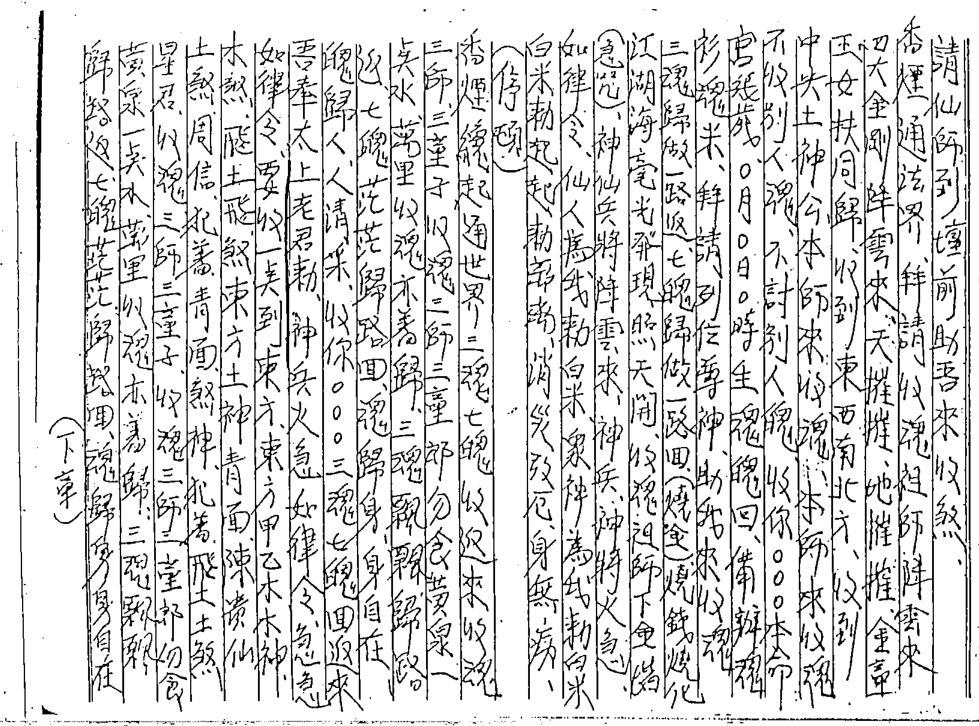 請仙師到壇前助吾來收煞、
香煙通法界、拜請收魂祖師降雲來
四大金剛降雲來、天摧摧、地摧摧、金童
玉女扶同歸、收到東西南北方、收到
中央土神公本師來收魂、本師來收魂
不收別人魂、不討別人魄、收你○○○本命
宮幾歲、○月○日○時生、魂魄回、備辦魂
衫魂米、拜請列位尊神、助我來收魂
三魂歸做一路返、七魄歸做一路回、(燒金)燒錢燒化
江湖海毫光發現照天開、收魂祖師下金階
(急咒)、神仙兵將降雲來、神兵、神將火急、
如律令、仙人為我勅白米、眾神為我勅白米
白米勅起起、勅茹茹、消災改厄、身無病、
(停頓)
香煙纔起通世界三魂七魄收返來收魂
三師三童子收魂三師三童郎勿食黃泉一
点水、萬里收魂亦着歸、三魂飄飄歸路
返、七魄茫茫歸路回、魂歸身、身自在
魄歸人、人清采、收你○○○三魂七魄回返來
吾奉太上老君勅、神兵火急如律令、急急
如律令、要收一点到東方、東方甲乙木木神、
木煞、飛土飛煞東方土神青面、陳瀆仙
土煞周信、犯着青面煞神犯着、飛土土煞
星君、收魂三師三童子收魂三師三童郎勿食
黃泉一点水、萬里收魂亦着歸、三魂飄飄
歸路返、七魄茫茫、歸路回、魂歸身身自在
(下章)